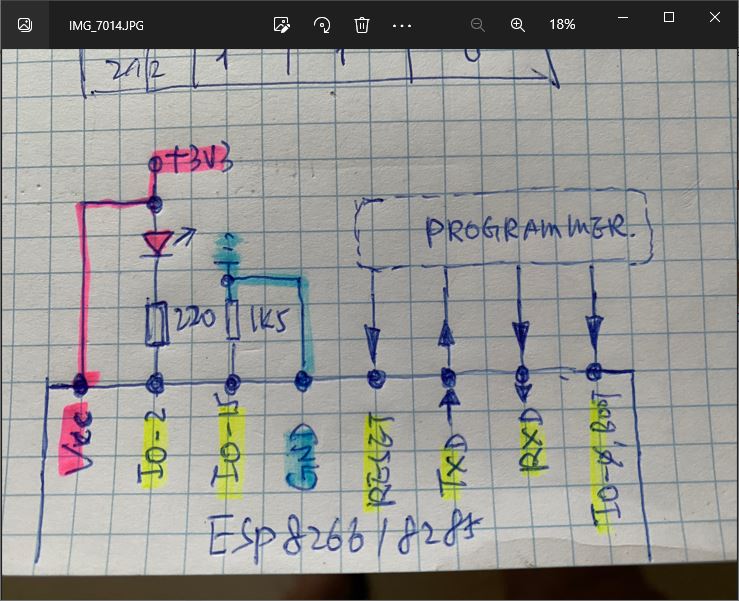 IMG_7014.JPG
18%
+3V3
PROGRAMMER.
220
1K5
Vcc
IO-2
IO-15
GND
RESET
TXD
RXD
IO-Ø, BOOT
ESP8266/8285